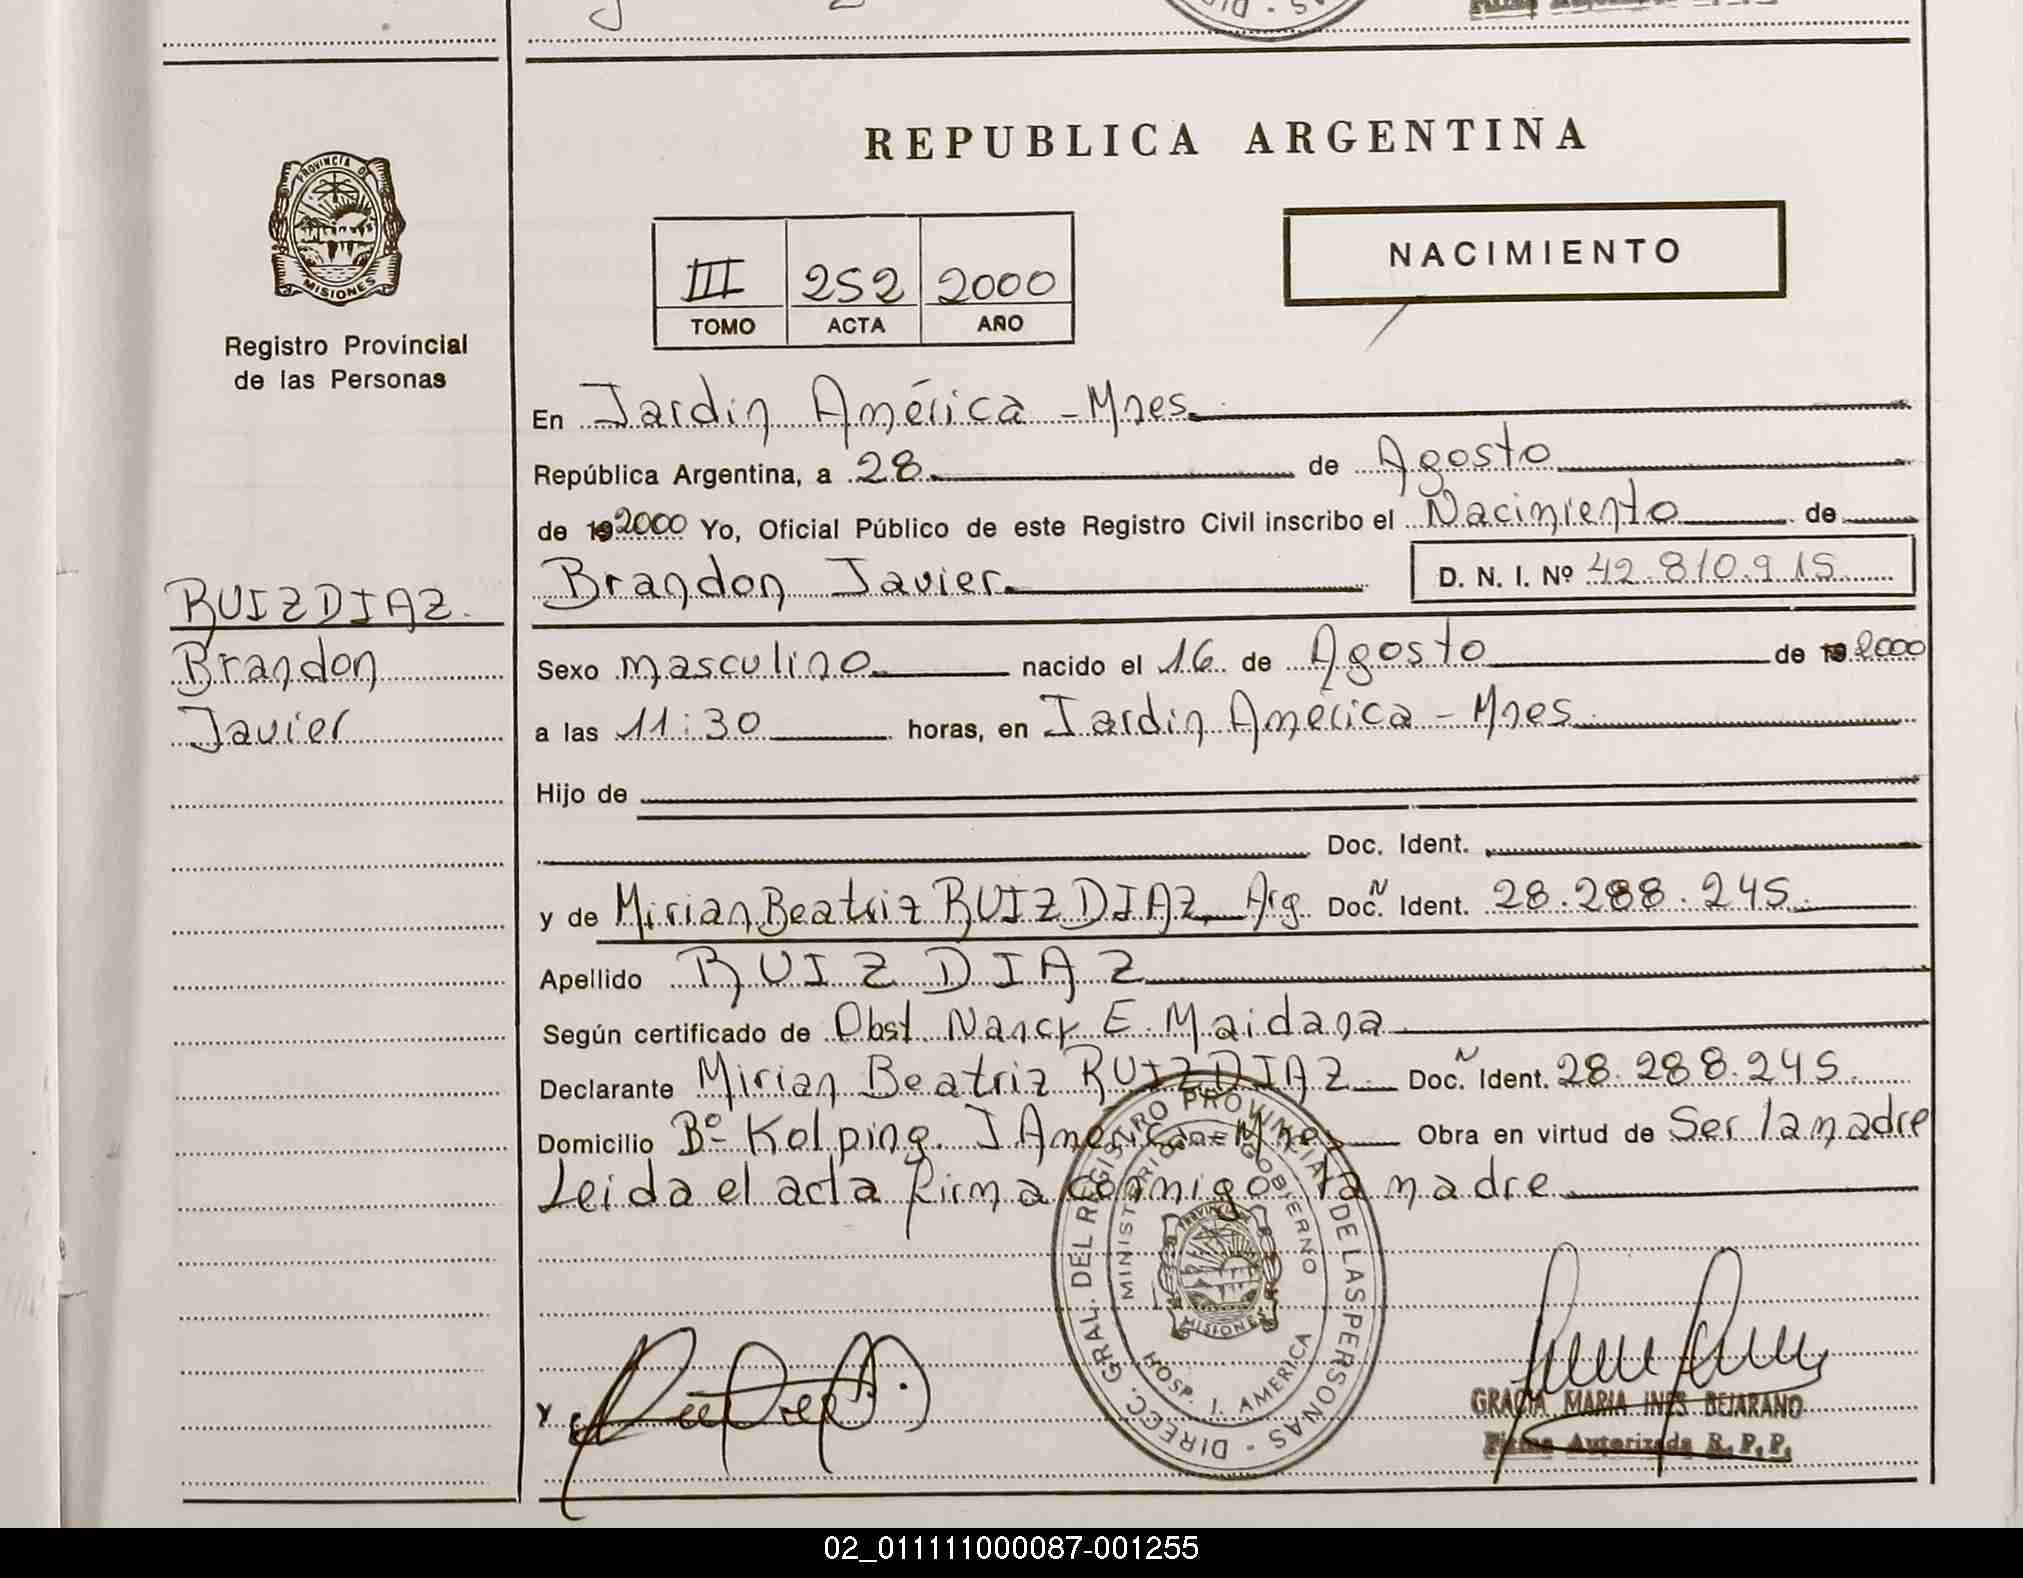 REPUBLICA ARGENTINA
PROVINCIA DE
MISIONES
Registro Provincial
de las Personas
NACIMIENTO
III 252 2000
TOMO ACTA AÑO
En Jardín América - Mnes.
República Argentina, a 28 de Agosto
de 192000 Yo, Oficial Público de este Registro Civil inscribo el Nacimiento de
Brandon Javier D. N. I. Nº 42.810.915
RUIZ DIAZ.
Brandon
Javier
Sexo masculino nacido el 16 de Agosto de 192000
a las 11:30 horas, en Jardín América - Mnes
Hijo de
Doc. Ident.
y de Mirian Beatriz RUIZ DIAZ, Arg Doc. N Ident. 28.288.245
Apellido RUIZ DIAZ
Según certificado de Obst. Nancy E. Maidana
Declarante Mirian Beatriz RUIZ DIAZ Doc. N Ident. 28.288.245
Domicilio Bº Kolping. J América - Mnes Obra en virtud de Ser la madre
Leida el acta firma conmigo la madre
DIRECC. GRAL. DEL REGISTRO PROVINCIAL DE LAS PERSONAS
MINISTERIO DE GOBIERNO
PROVINCIA
MISIONES
HOSP. J. AMERICA
Y
GRACIA MARIA INES BEJARANO
Firma Autorizada R. P. P.
02_011111000087-001255